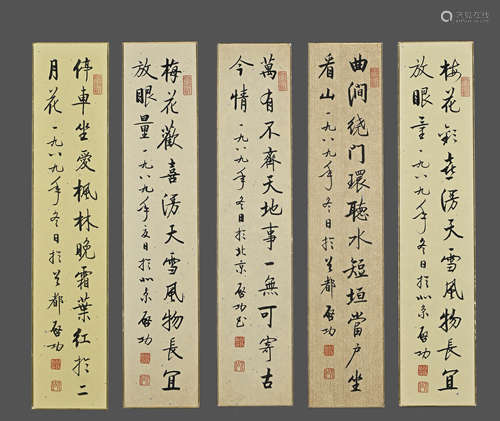 梅花彩喜漫天雪風物長宜
放眼量一九八九年冬日於北京啓功
曲澗绕门環聽水短垣當户坐
看山一九八九年冬日於首都啓功
萬有不齊天地事一無可寄古
今情一九八九年冬日於北京啓功書
梅花歡喜漫天雪風物長宜
放眼量一九八九年夏日於北京啓功
停車坐愛楓林晚霜葉红於二
月花一九八九年冬日於首都啓功
天航在线